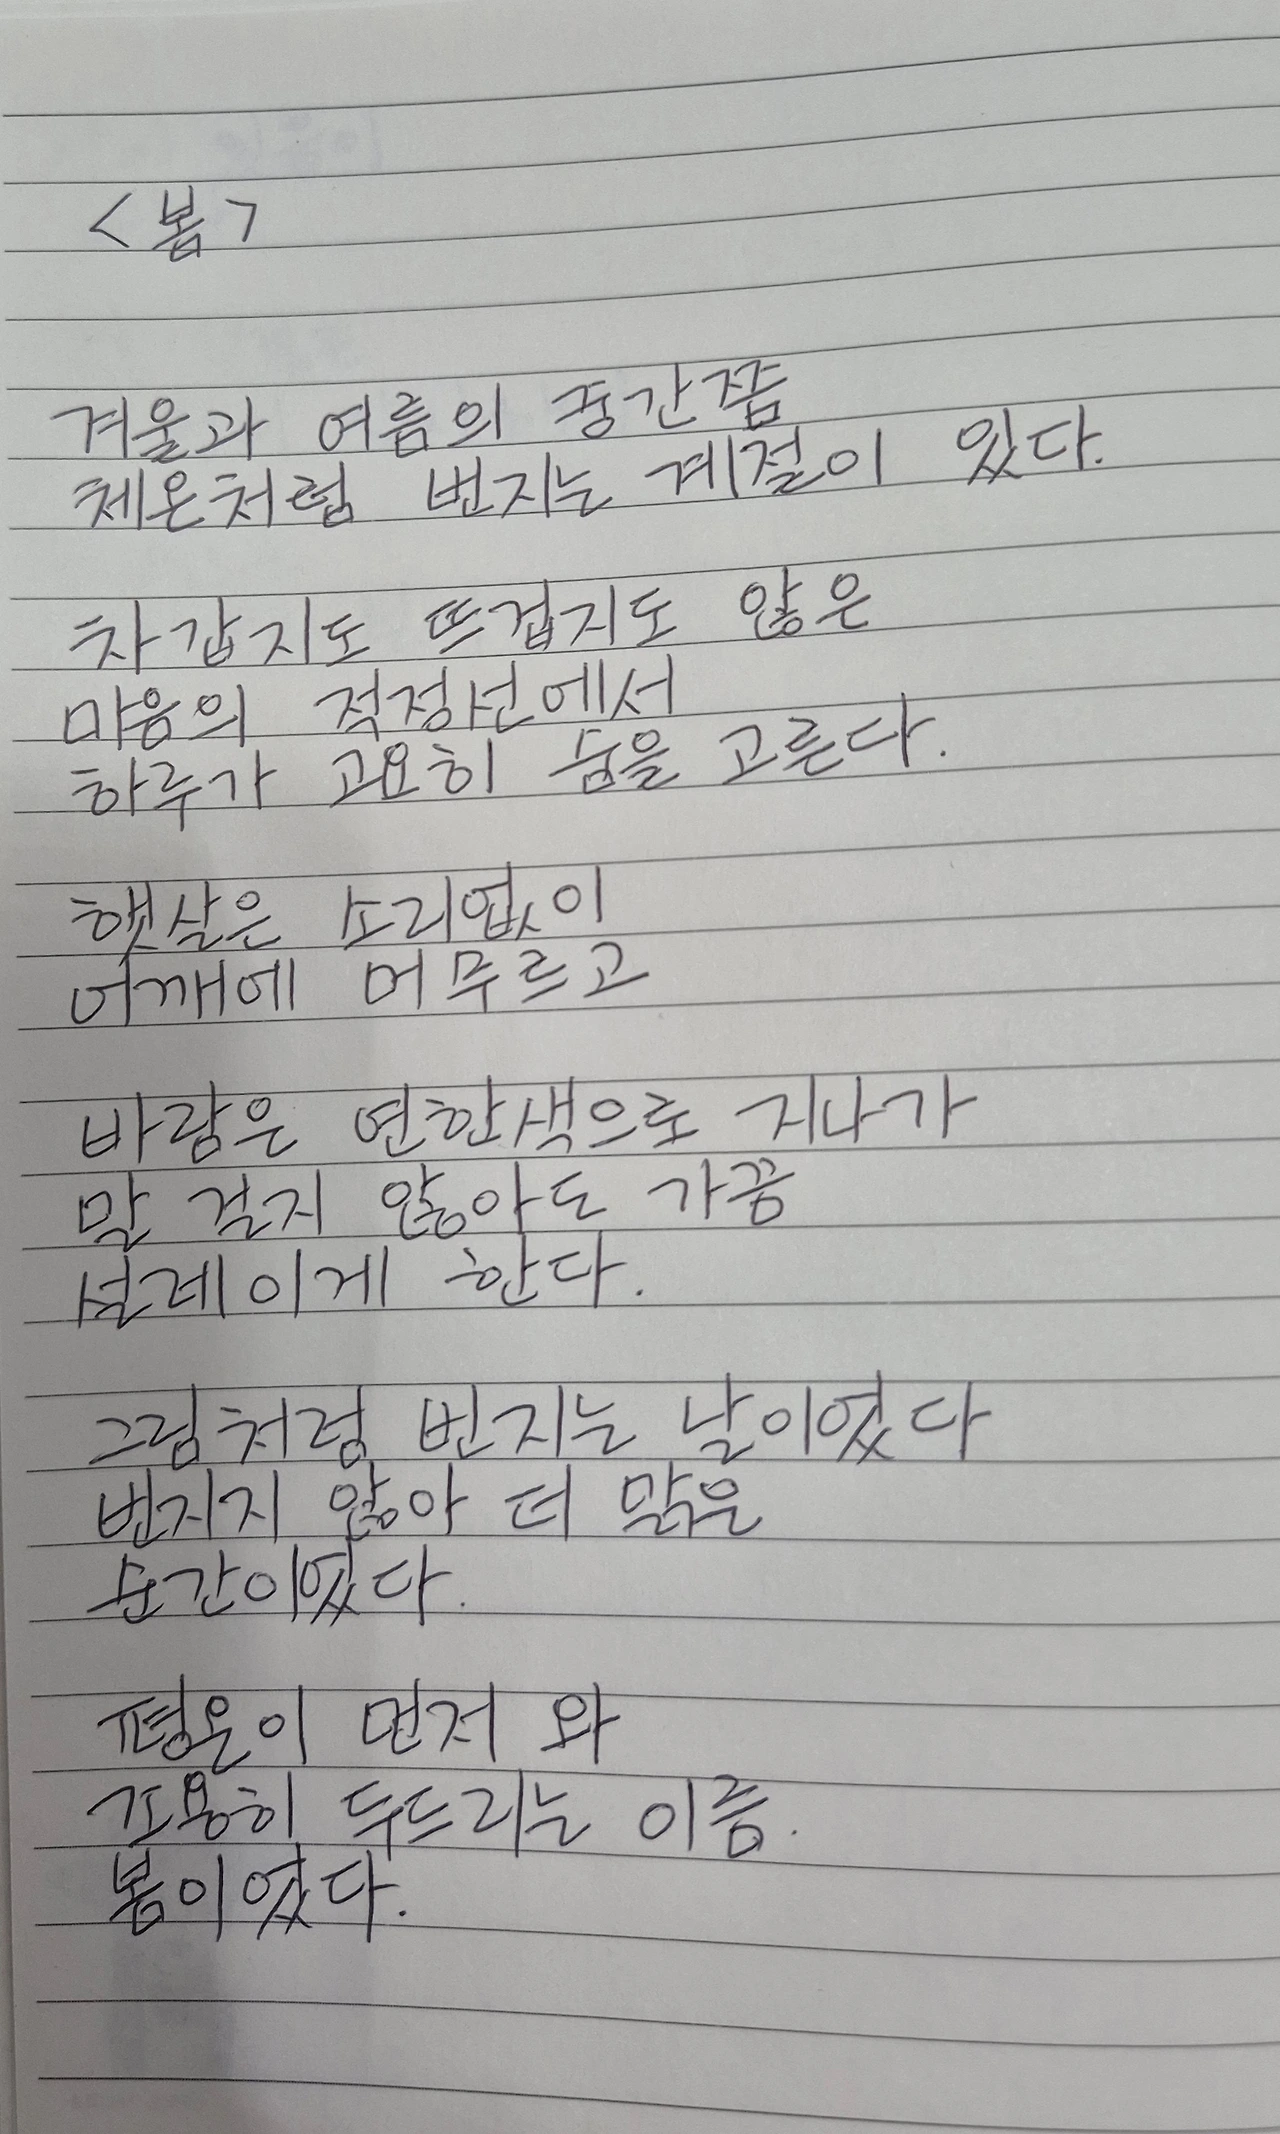 <봄>
겨울과 여름의 중간쯤
체온처럼 번지는 계절이 있다.
차갑지도 뜨겁지도 않은
마음의 적정선에서
하루가 고요히 숨을 고른다.
햇살은 소리없이
어깨에 머무르고
바람은 연한색으로 지나가
말 걸지 않아도 가끔
설레이게 한다.
그림처럼 번지는 날이었다
번지지 않아 더 맑은
순간이었다.
평온이 먼저 와
조용히 두드리는 이름.
봄이었다.